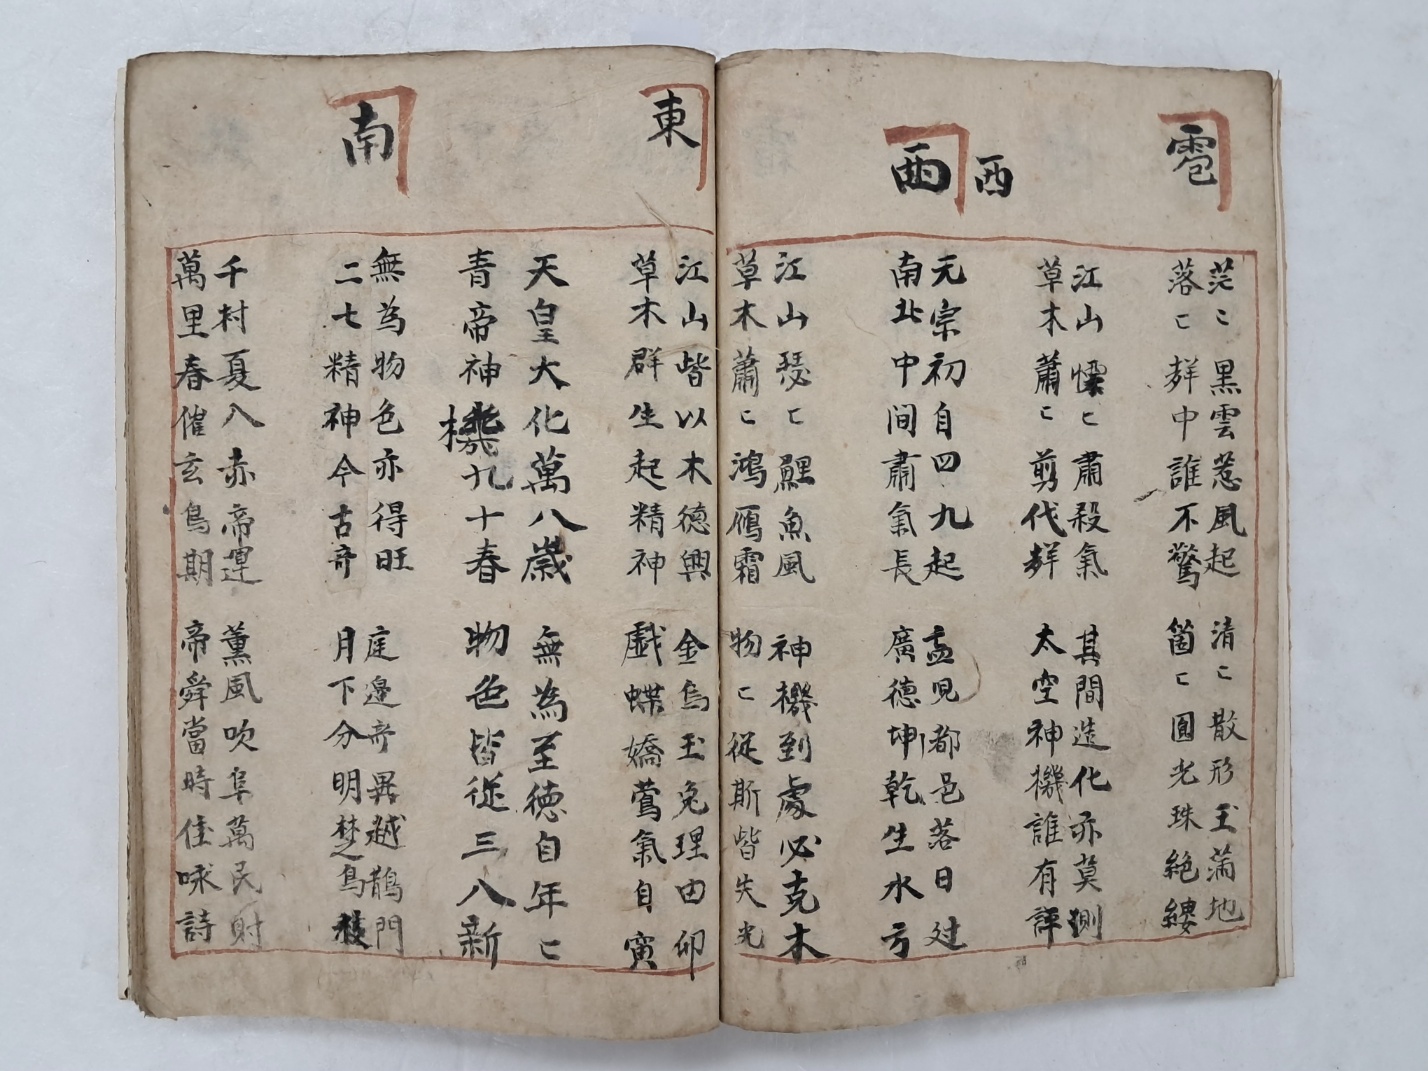 雹
茫〻黑雲惹風起 清〻散形玉蒲地
落〻群中誰不驚 箇〻圓光珠絶縷
江山慄〻肅殺氣 其間造化亦莫測
草木蕭〻剪代群 太空神機誰有評
西
西
元宗初自四九起 孟児都邑落日过
南北中间肅氣長 廣德坤乾生水方
江山瑟〻鯉魚風 神機到處必克木
草木蕭〻鴻鴈霜 物〻従斯皆失光
東
江山皆以木德興 金烏玉兔理由卯
草木群生起精神 戯蝶嬌鶯氣自寅
天皇大化萬八歲 無為至德自年〻
青帝神機九十春 物色皆従三八新
南
無為物色亦得旺 庭邊奇異越鵲門
二七精神今古奇 月下分明楚鳥
千村夏入赤帝運 薰風吹阜萬民財
萬里春催玄鳥期 帝舜當時佳咏詩